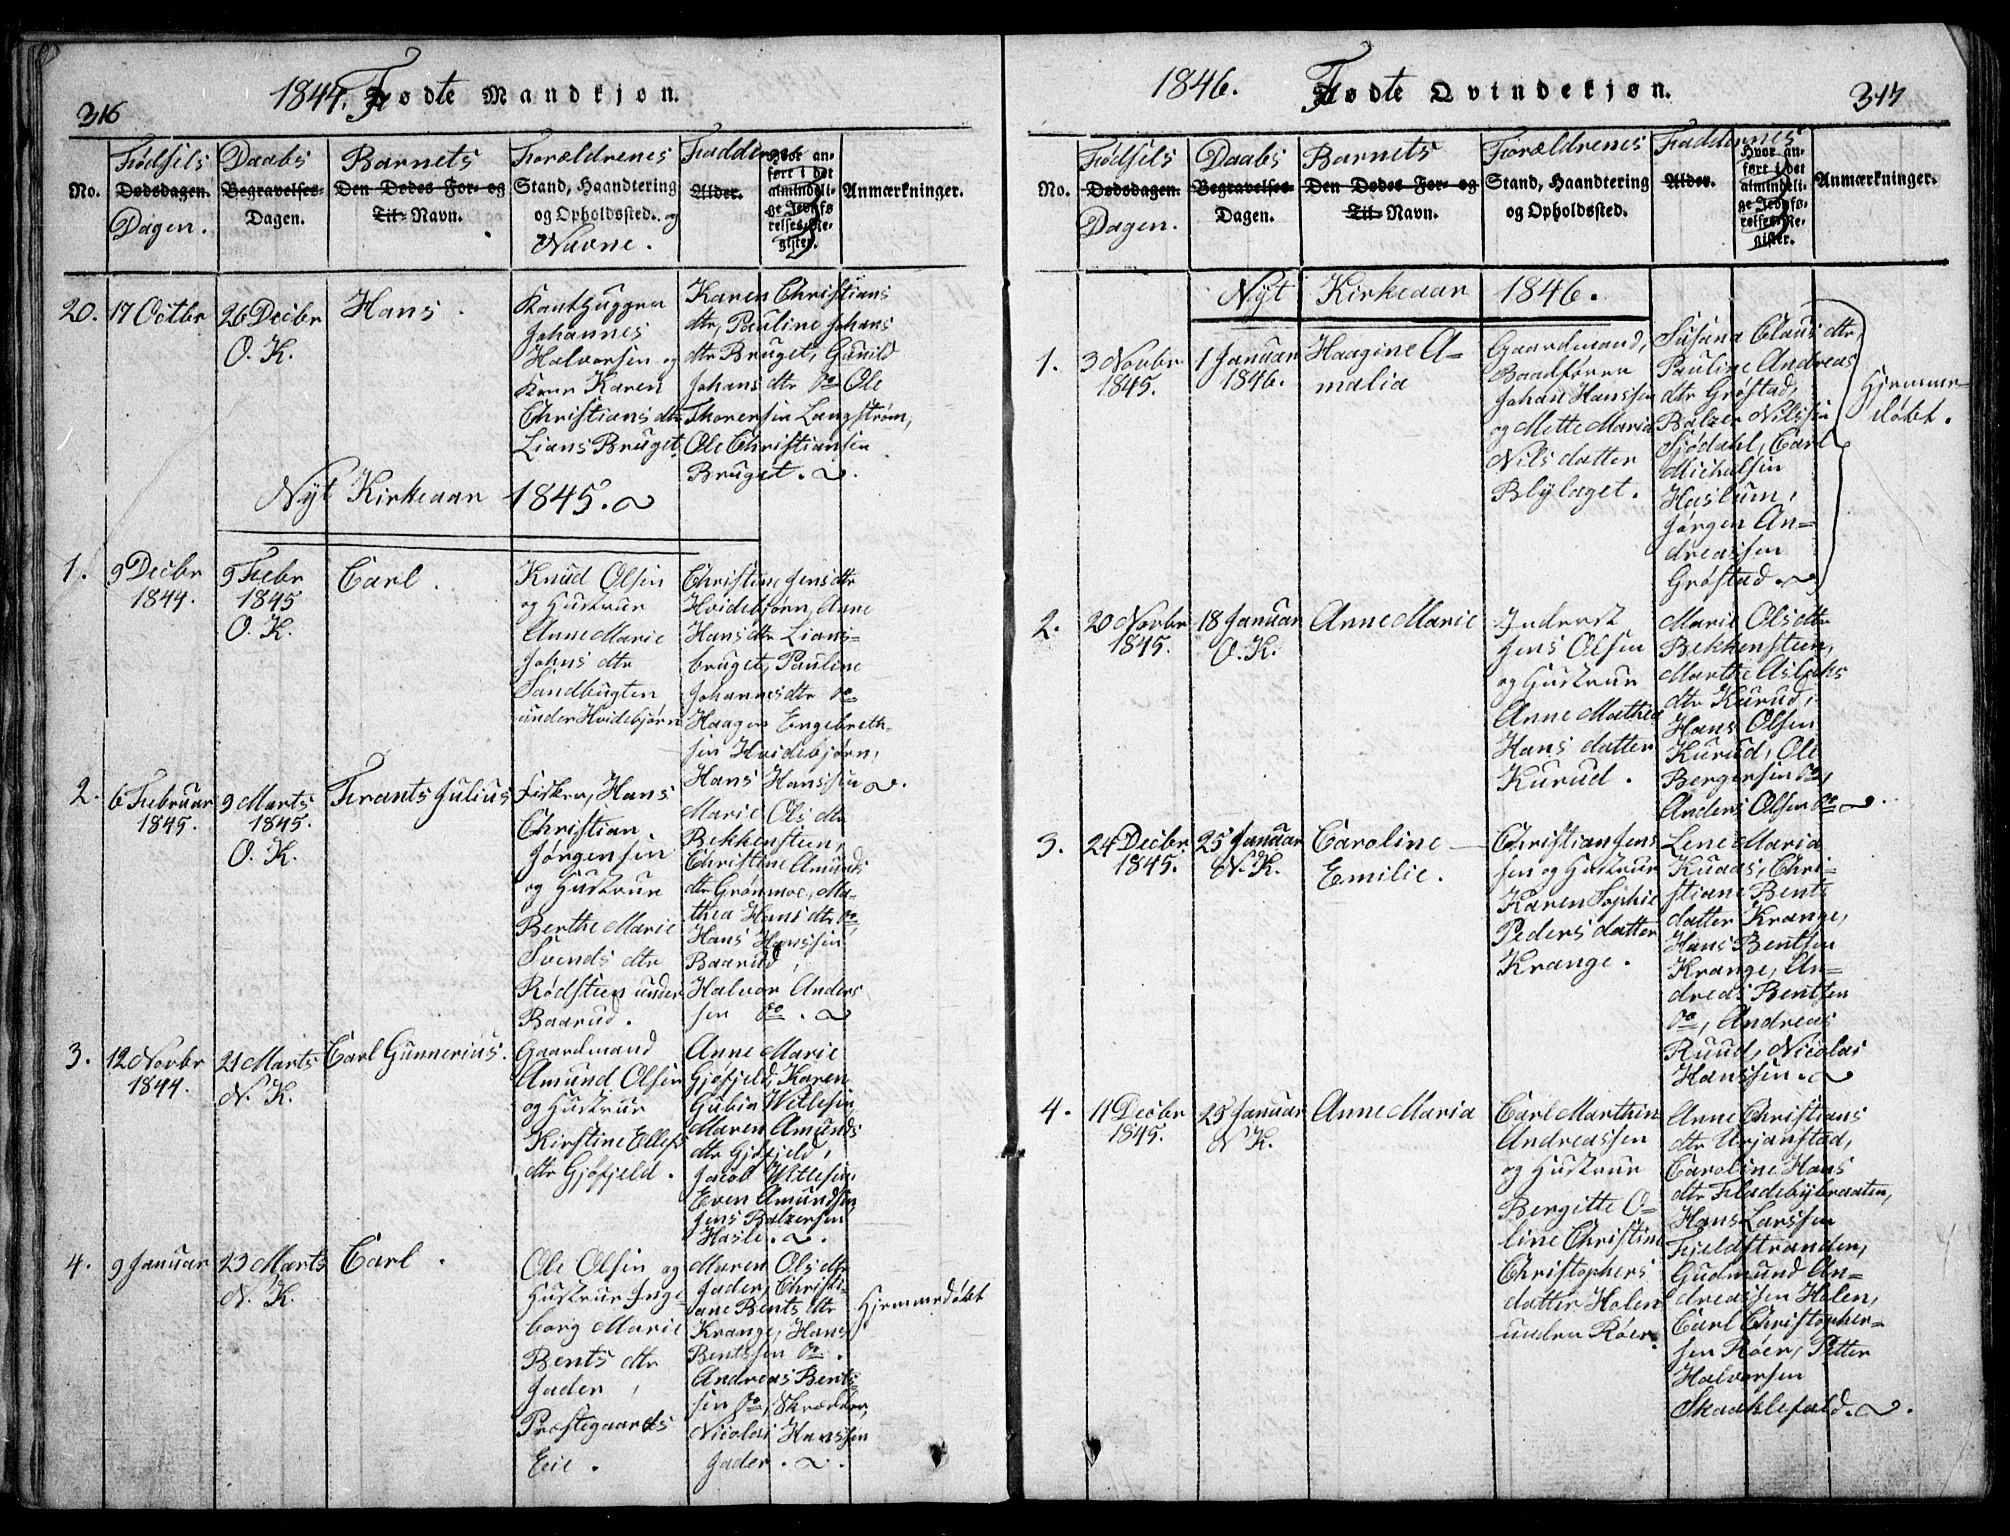 316
1844. Fødte Mandkjøn.
No.
Fødsels
Dødsdagen.
Dagen.
Daabs
Begravelses-
Dagen.
Barnets
Den Dødes For- og
Til- Navn.
Forældrenes
Stand, Haandtering
og Opholdssted. og
Navne.
Faddernes
Alder.
Hvor an-
ført i det
almindeli-
ge Jevnfø-
relses-Re-
gister.
Anmærkninger.
20. 17 Octbr
26 Decbr
O. K.
Hans.
Johannes
Halvorsen og
Kone Karen
Christians dtr
Lians Bruget.
Karen Christians
dtr, Pauline Johans
dtr Bruget, Gunild
Johans dtr do Ole
Thoresen Langstrøm,
Ole Christiansen
Bruget.
Nyt Kirkeaar 1845.
1. 9 Decbr
1844.
9 Febr
1845
O. K.
Carl.
Knud Olsen
og Hustrue
Anne Marie
Johns dtr
Sandbugten
under Hvidebjørn
Christine Jens dtr
Hvidebjørn, Anne
Hans dtr Lians-
bruget, Pauline
Johannes dtr do
Haagen Engebreth-
sen Hvidebjørn,
Hans Hanssen
2. 6 Februar
1845.
9 Marts
1845.
O. K.
Frants Julius
Fisker, Hans
Christian
Jørgensen
og Hustrue
Berthe Marie
Svends dtr
Rødsteen under
Baarud.
Marie Ols dtr
Bekkensteen,
Christine Amunds
dtr Grønmoe, Ma-
thea Hans dtr do,
Hans Hanssen
Baarud,
Halvor Anders
sen do.
3. 12 Novbr
1844.
21 Marts
N. K.
Carl Gunnerius.
Gaardmand
Amund Olsen
og Hustrue
Kirstine Ellefs
dtr Gjøfjeld.
Anne Marie
Gjøfjeld, Karen
Gubia Witlesen,
Maren Amunds
dtr Gjøfjeld,
Jacob Witlesen,
Even Amundsen
Jens Balzersen
Hasle.
4. 9 Januar
23 Marts
N. K.
Carl.
Ole Olsen og
Hustrue Inge-
borg Marie
Bents dtr
Jader,
Præstegaards
Eie.
Maren Ols dtr
Jader, Christi-
ane Bents dtr
Krange, Hans
Bentssen do.
Andreas Bents-
sen do, Skrædder,
Nicolai Hanssen
Jader.
Hjemmedøbt
1846. Fødte Qvindekjøn.
317
No.
Fødsels
Dødsdagen.
Dagen.
Daabs
Begravelses-
Dagen.
Barnets
Den Dødes For- og
Til- Navn.
Forældrenes
Stand, Haandtering
og Opholdssted.
Faddernes
Alder.
Hvor an-
ført i det
almindeli-
ge Jevnfø-
relses-Re-
gister.
Anmærkninger.
Nyt Kirkeaar 1846.
1. 3 Novbr
1845.
1 Januar
1846.
Haagine A-
malia
Gaardmand,
Baadfører
Johan Hanssen
og Mette Maria
Nils datter
Blylaget.
Susana Claus dtr,
Pauline Andreas
dtr Grøstad,
Balzer Nilssen
Sjødahl, Carl
Michelsen
Haslum,
Jørgen An-
dreassen
Grøstad.
Hjemme-
døbt.
2. 20 Novbr
1845.
18 Januar
O. K.
Anne Marie
Inderst
Jens Olsen
og Hustrue
Anne Mathea
Hans datter
Kurud.
Marie Ols dtr
Bekkensteen,
Marthe Aslaks
dtr Kurud,
Hans Olsen
Kurud, Ole
Bergersen do,
Anders Olsen do
3. 24 Decbr
1845.
25 Januar
N. K.
Caroline
Emilie.
Christian Jens
sen og Hustrue
Karen Sophie
Peders datter
Krange.
Lene Maria
Kuaas, Chri-
stiane Bents
datter Krange,
Hans Bentsen
Krange, An-
dreas Bentsen
do, Andreas
Ruud, Nicolai
Hanssen.
4. 11 Decbr
1845.
25 Januar
N. K.
Anne Maria
Carl Marthin
Andreassen
og Hustrue
Bergitte O-
line Christine
Christophers
datter Holen
under Røer.
Anne Christians
dtr Urjanstad,
Caroline Hans
dtr Fladebybraaten,
Hans Larssen
Fjeldstranden,
Gudmund An-
dreassen Holen,
Carl Christopher-
sen Røer, Petter
Halvorsen
Skaaklefald.